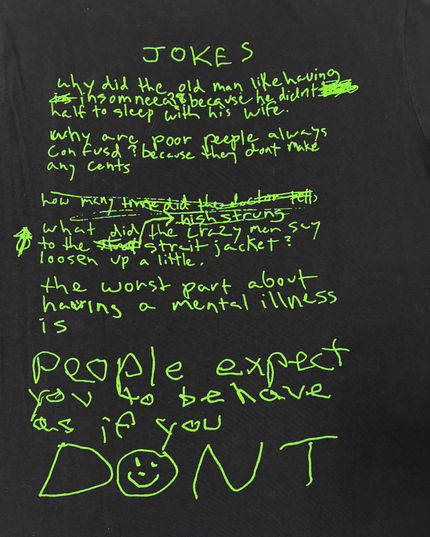 JOKES
why did the old man like having
insomneea? because he didnt
haff to sleep with his wife.
why are poor people always
confusd? because they dont make
any cents
how many time did the doctor tell
high strung
what did the crazy man say
to the strait jacket?
loosen up a little.
the worst part about
having a mental illness
is
people expect
you to behave
as if you
DONT